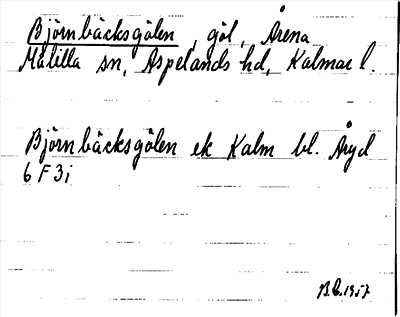 Björnbäcksgölen, göl, Årena
Målilla sn, Aspelands hd, Kalmar l.
Björnbäcksgölen ek Kalm bl. Åryd
6 F 3i
B.C. 1957